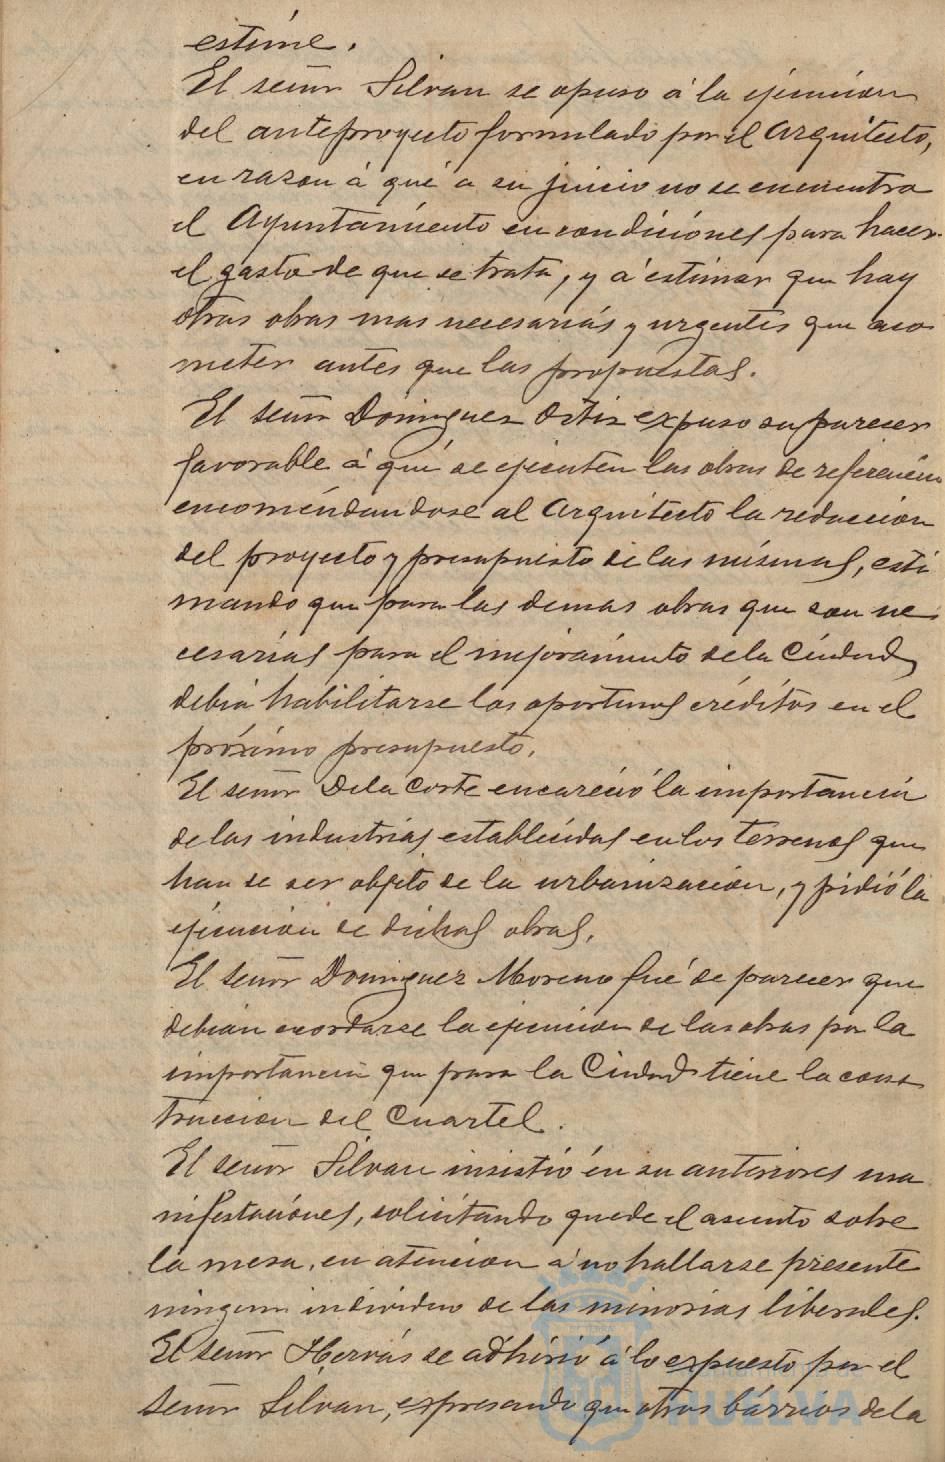 estime.
El señor Silvan se opuso á la ejecucion
del anteproyecto formulado por el Arquitecto,
en razon á que á su juicio no se encuentra
el Ayuntamiento en condiciones para hacer
el gasto de que se trata, y á estimar que hay
otras obras mas necesarias y urgentes que aco
meter antes que las propuestas.
El señor Dominguez Ortiz expuso su parecer
favorable á que se ejecuten las obras de referencia
encomendandose al Arquitecto la redaccion
del proyecto y presupuesto de las mismas, esti
mando que para las demas obras que son ne
cesarias para el mejoramiento de la Ciudad
debia habilitarse los oportunos créditos en el
próximo presupuesto.
El señor De la Corte encareció la importancia
de las industrias establecidas en los terrenos que
han de ser objeto de la urbanizacion, y pidió la
ejecucion de dichas obras.
El señor Dominguez Moreno fué de parecer que
debian acordarse la ejecucion de las obras por la
importancia que para la Ciudad tiene la cons
truccion del Cuartel.
El señor Silvan insistió en su anteriores ma
nifestaciones, solicitando quede el asunto sobre
la mesa, en atencion á no hallarse presente
ningun individuo de las minorias liberales.
El señor Hervás se adhirió á lo expuesto por el
señor Silvan, expresando que otros bárrios de la
Ayuntamiento de
HUELVA